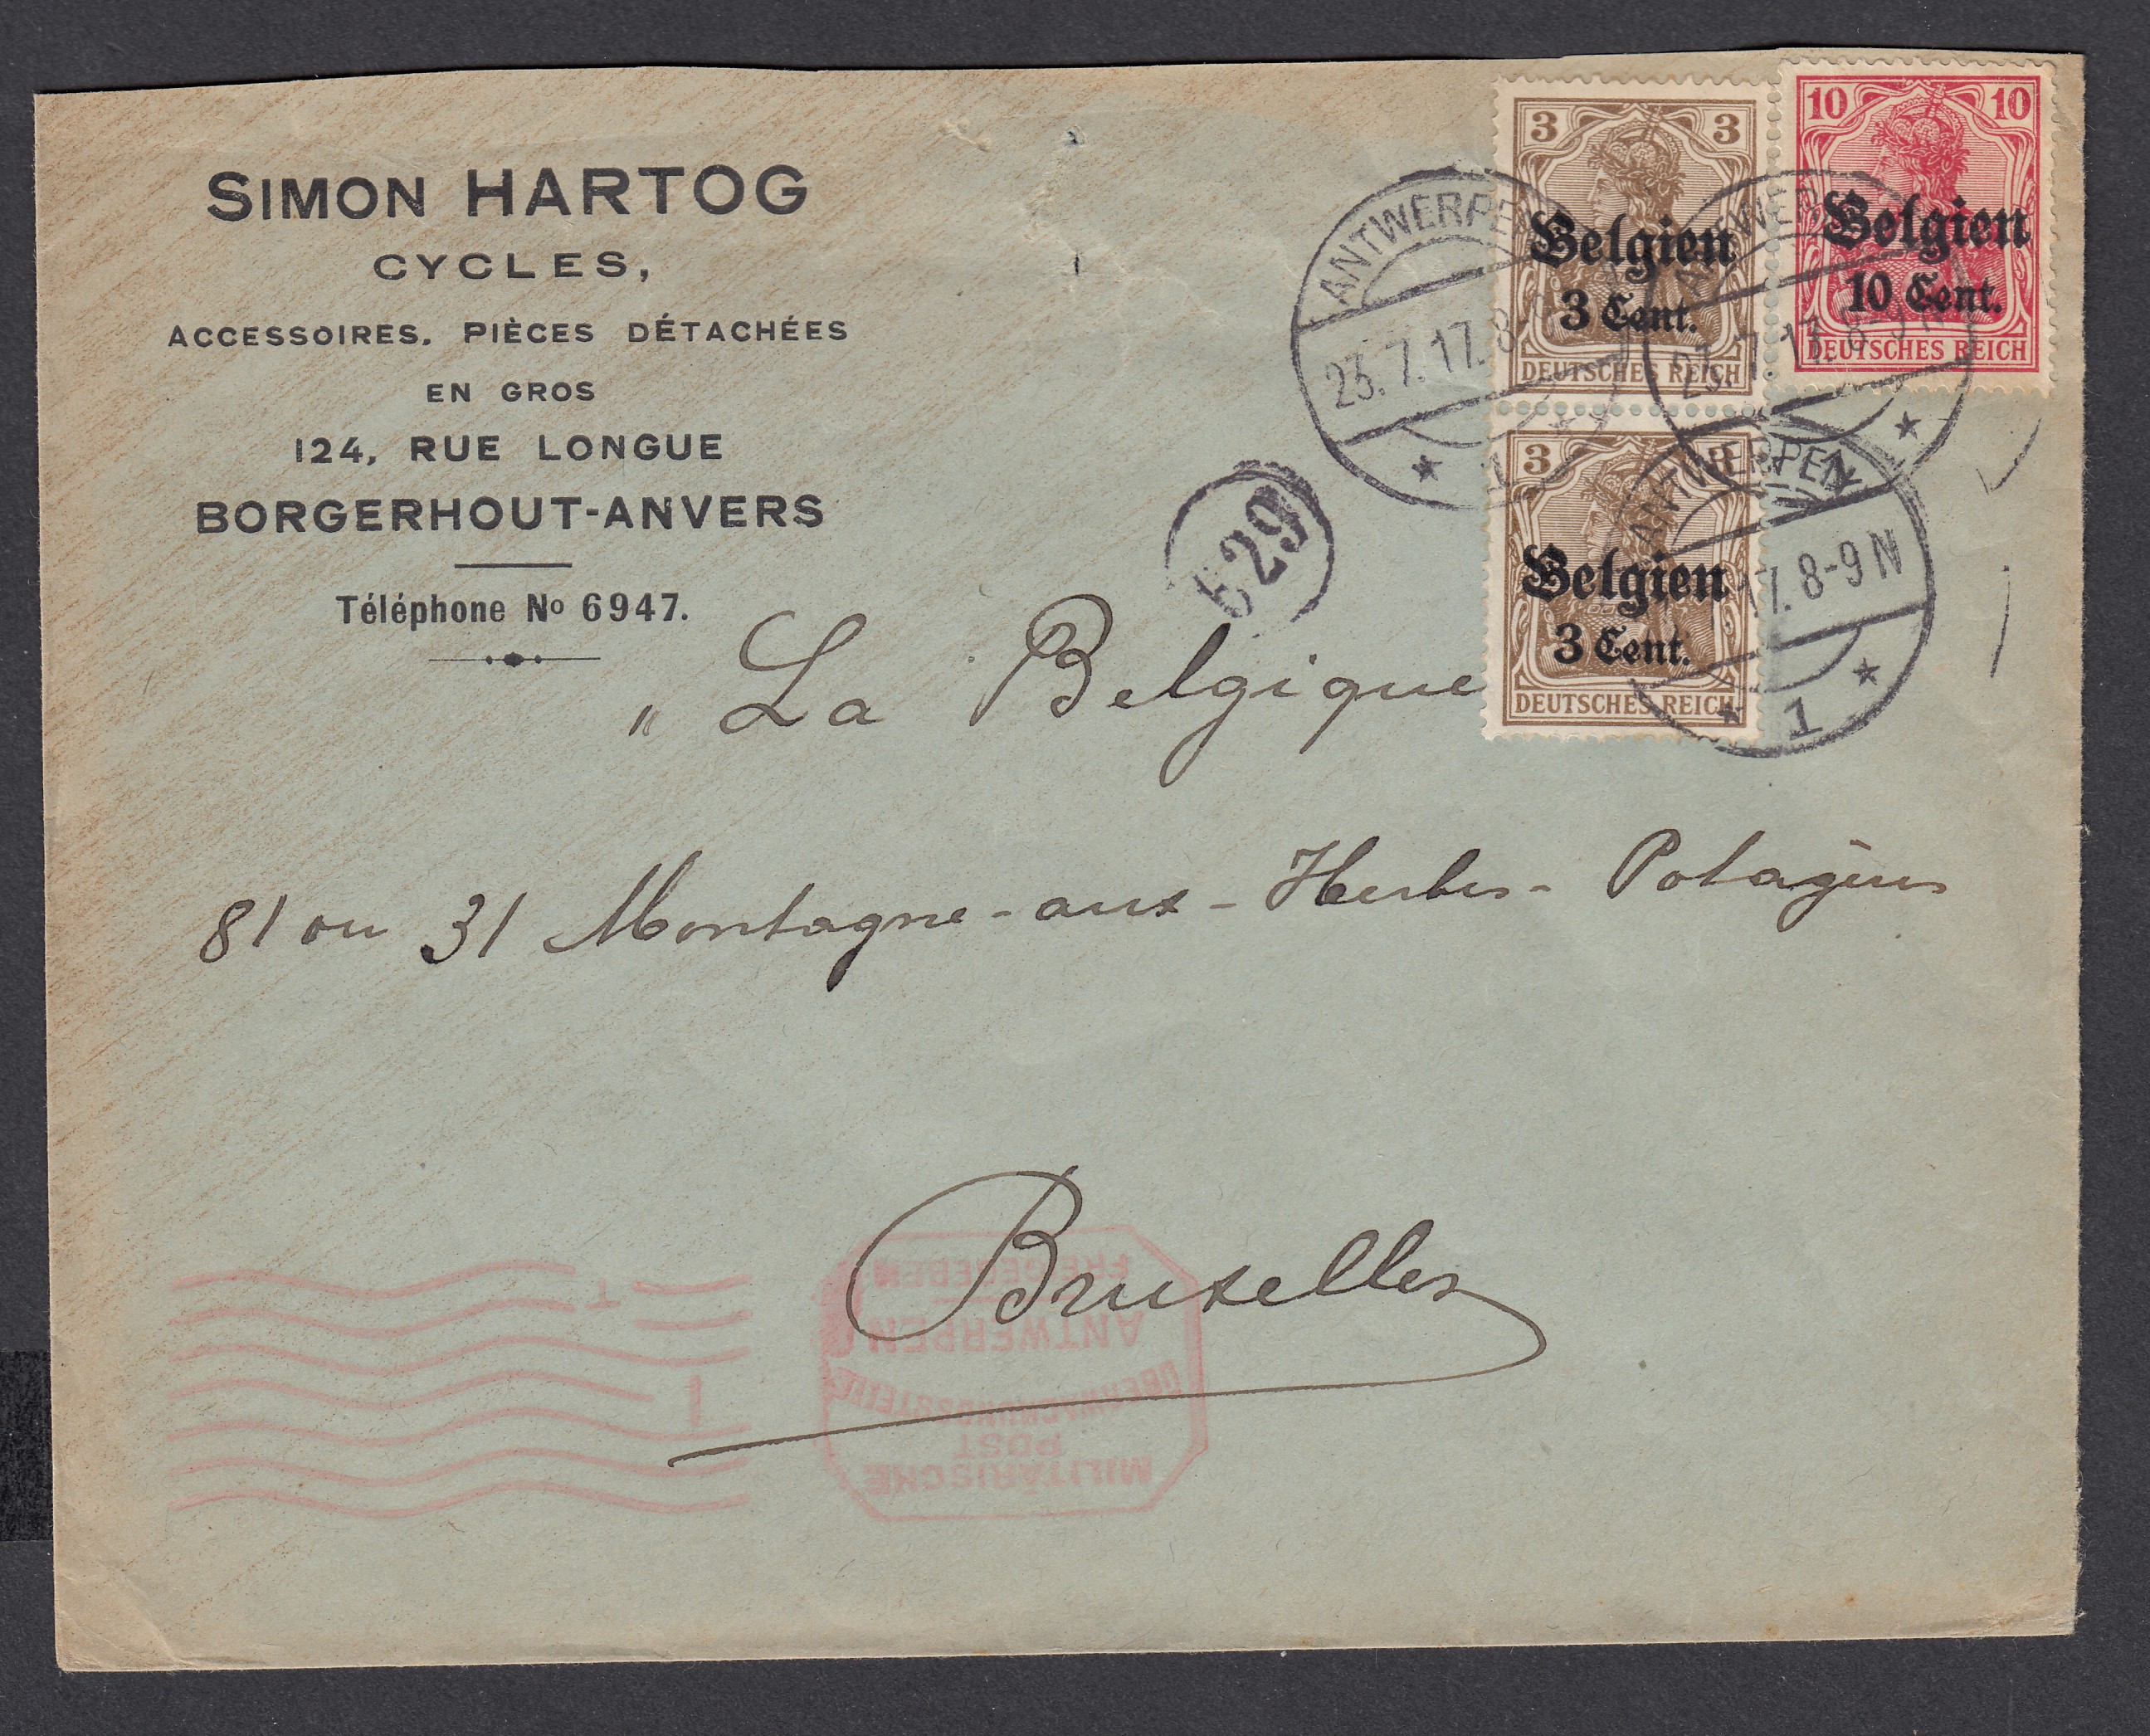 SIMON HARTOG
CYCLES,
ACCESSOIRES. PIÈCES DÉTACHÉES
EN GROS
124, RUE LONGUE
BORGERHOUT-ANVERS
Téléphone No 6947.
3 3
Belgien
3 Cent.
DEUTSCHES REICH
10 10
Belgien
10 Cent.
DEUTSCHES REICH
3 3
Belgien
3 Cent.
DEUTSCHES REICH
ANTWERPEN
23.7.17. 8-
1
ANTWERPEN
23.7.17. 8-9 N
1
ANTWERPEN
17. 8-9 N
1
529
„ La Belgique
81 ou 31 Montagne-aux-Herbes-Potagères
Bruxelles
MILITÄRISCHE
POST
ÜBERWACHUNGSSTELLE
ANTWERPEN
FREIGEGEBEN